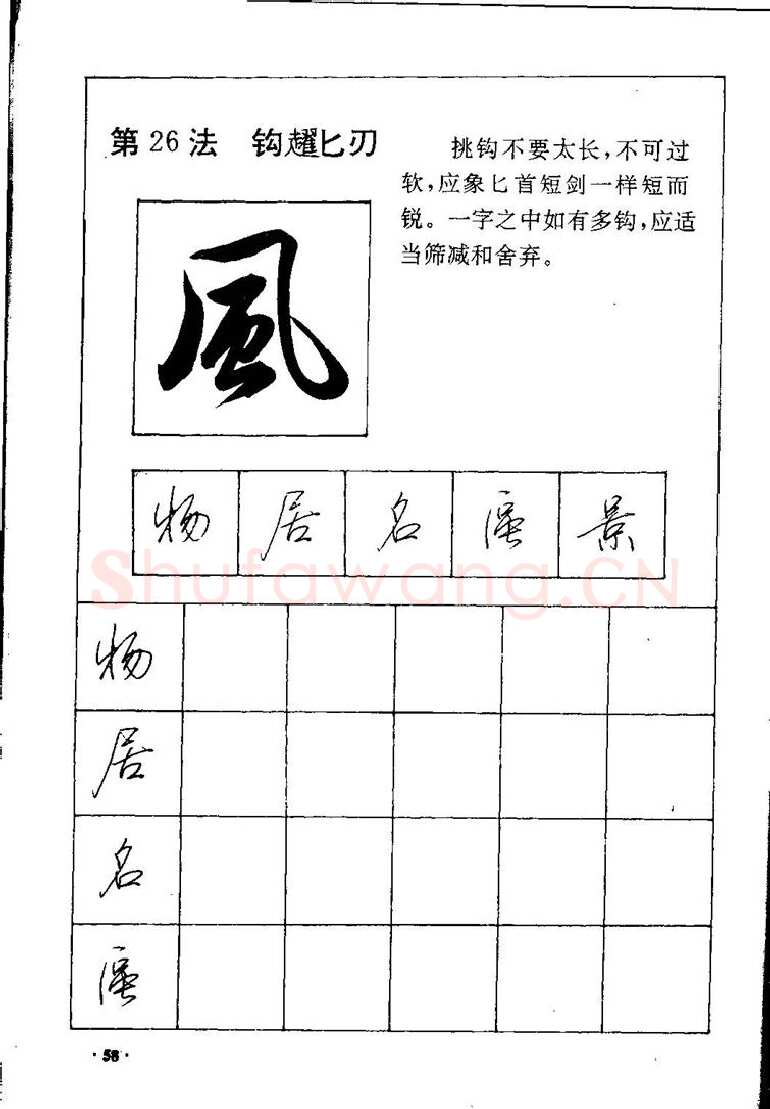 第26法 钩趯匕刃
挑钩不要太长,不可过
软,应象匕首短剑一样短而
锐。一字之中如有多钩,应适
当筛减和舍弃。
風
物 居 名 景
ShufaWang.CN
物
居
名
·58·